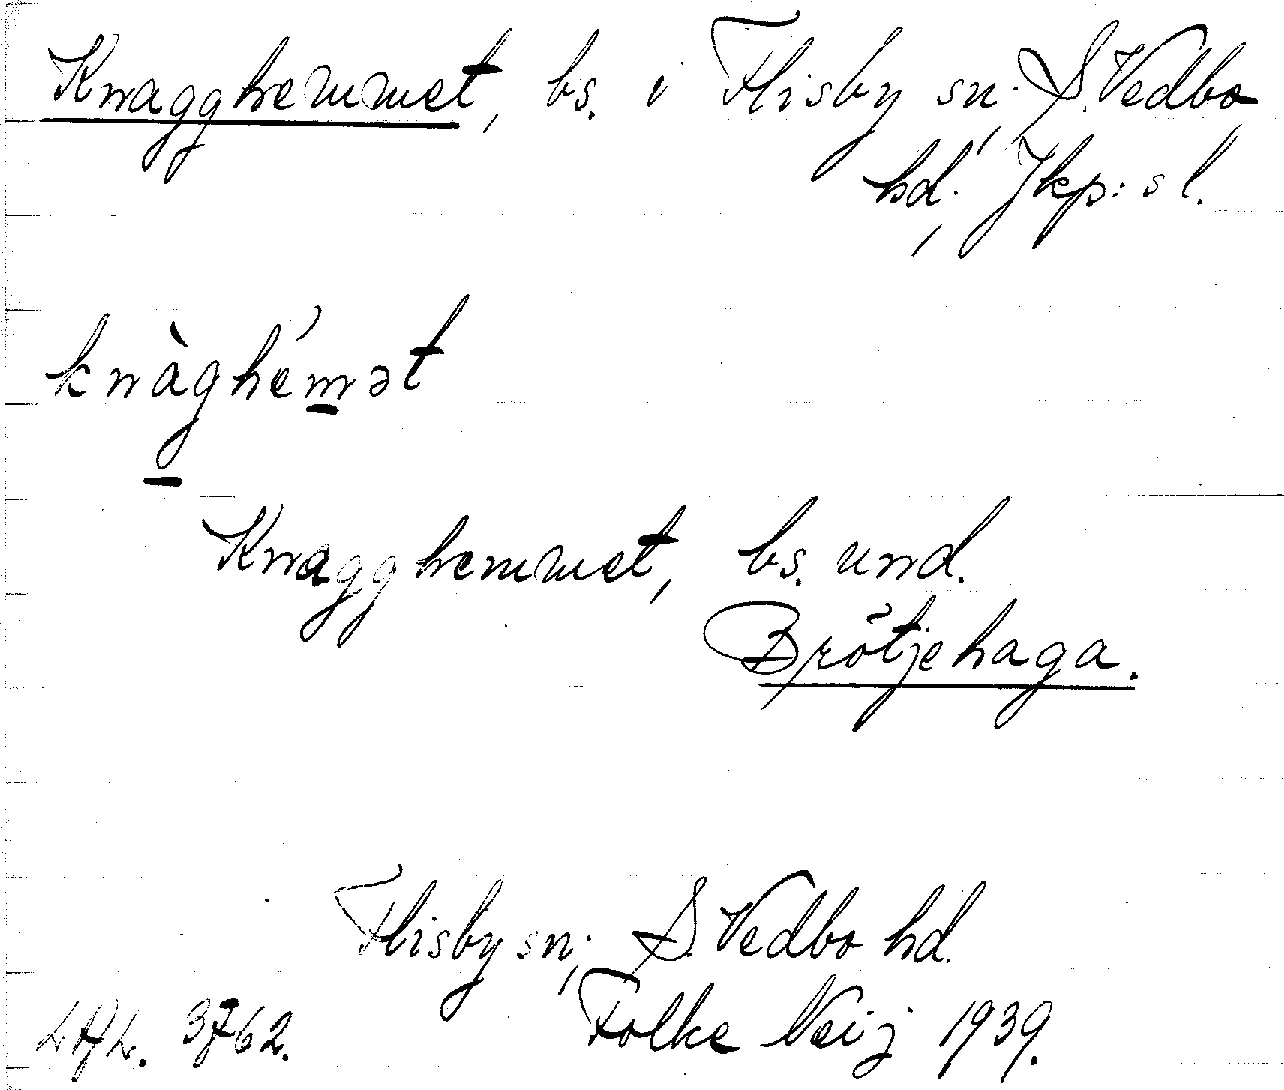 Knagghemmet, bs. i Flisby sn., S. Vedbo
hd., Jkp:s l.
knàghémət
Knagghemmet, bs. und.
Brötjehaga.
Flisby sn., S. Vedbo hd.
3762. Folke Neij 1939.